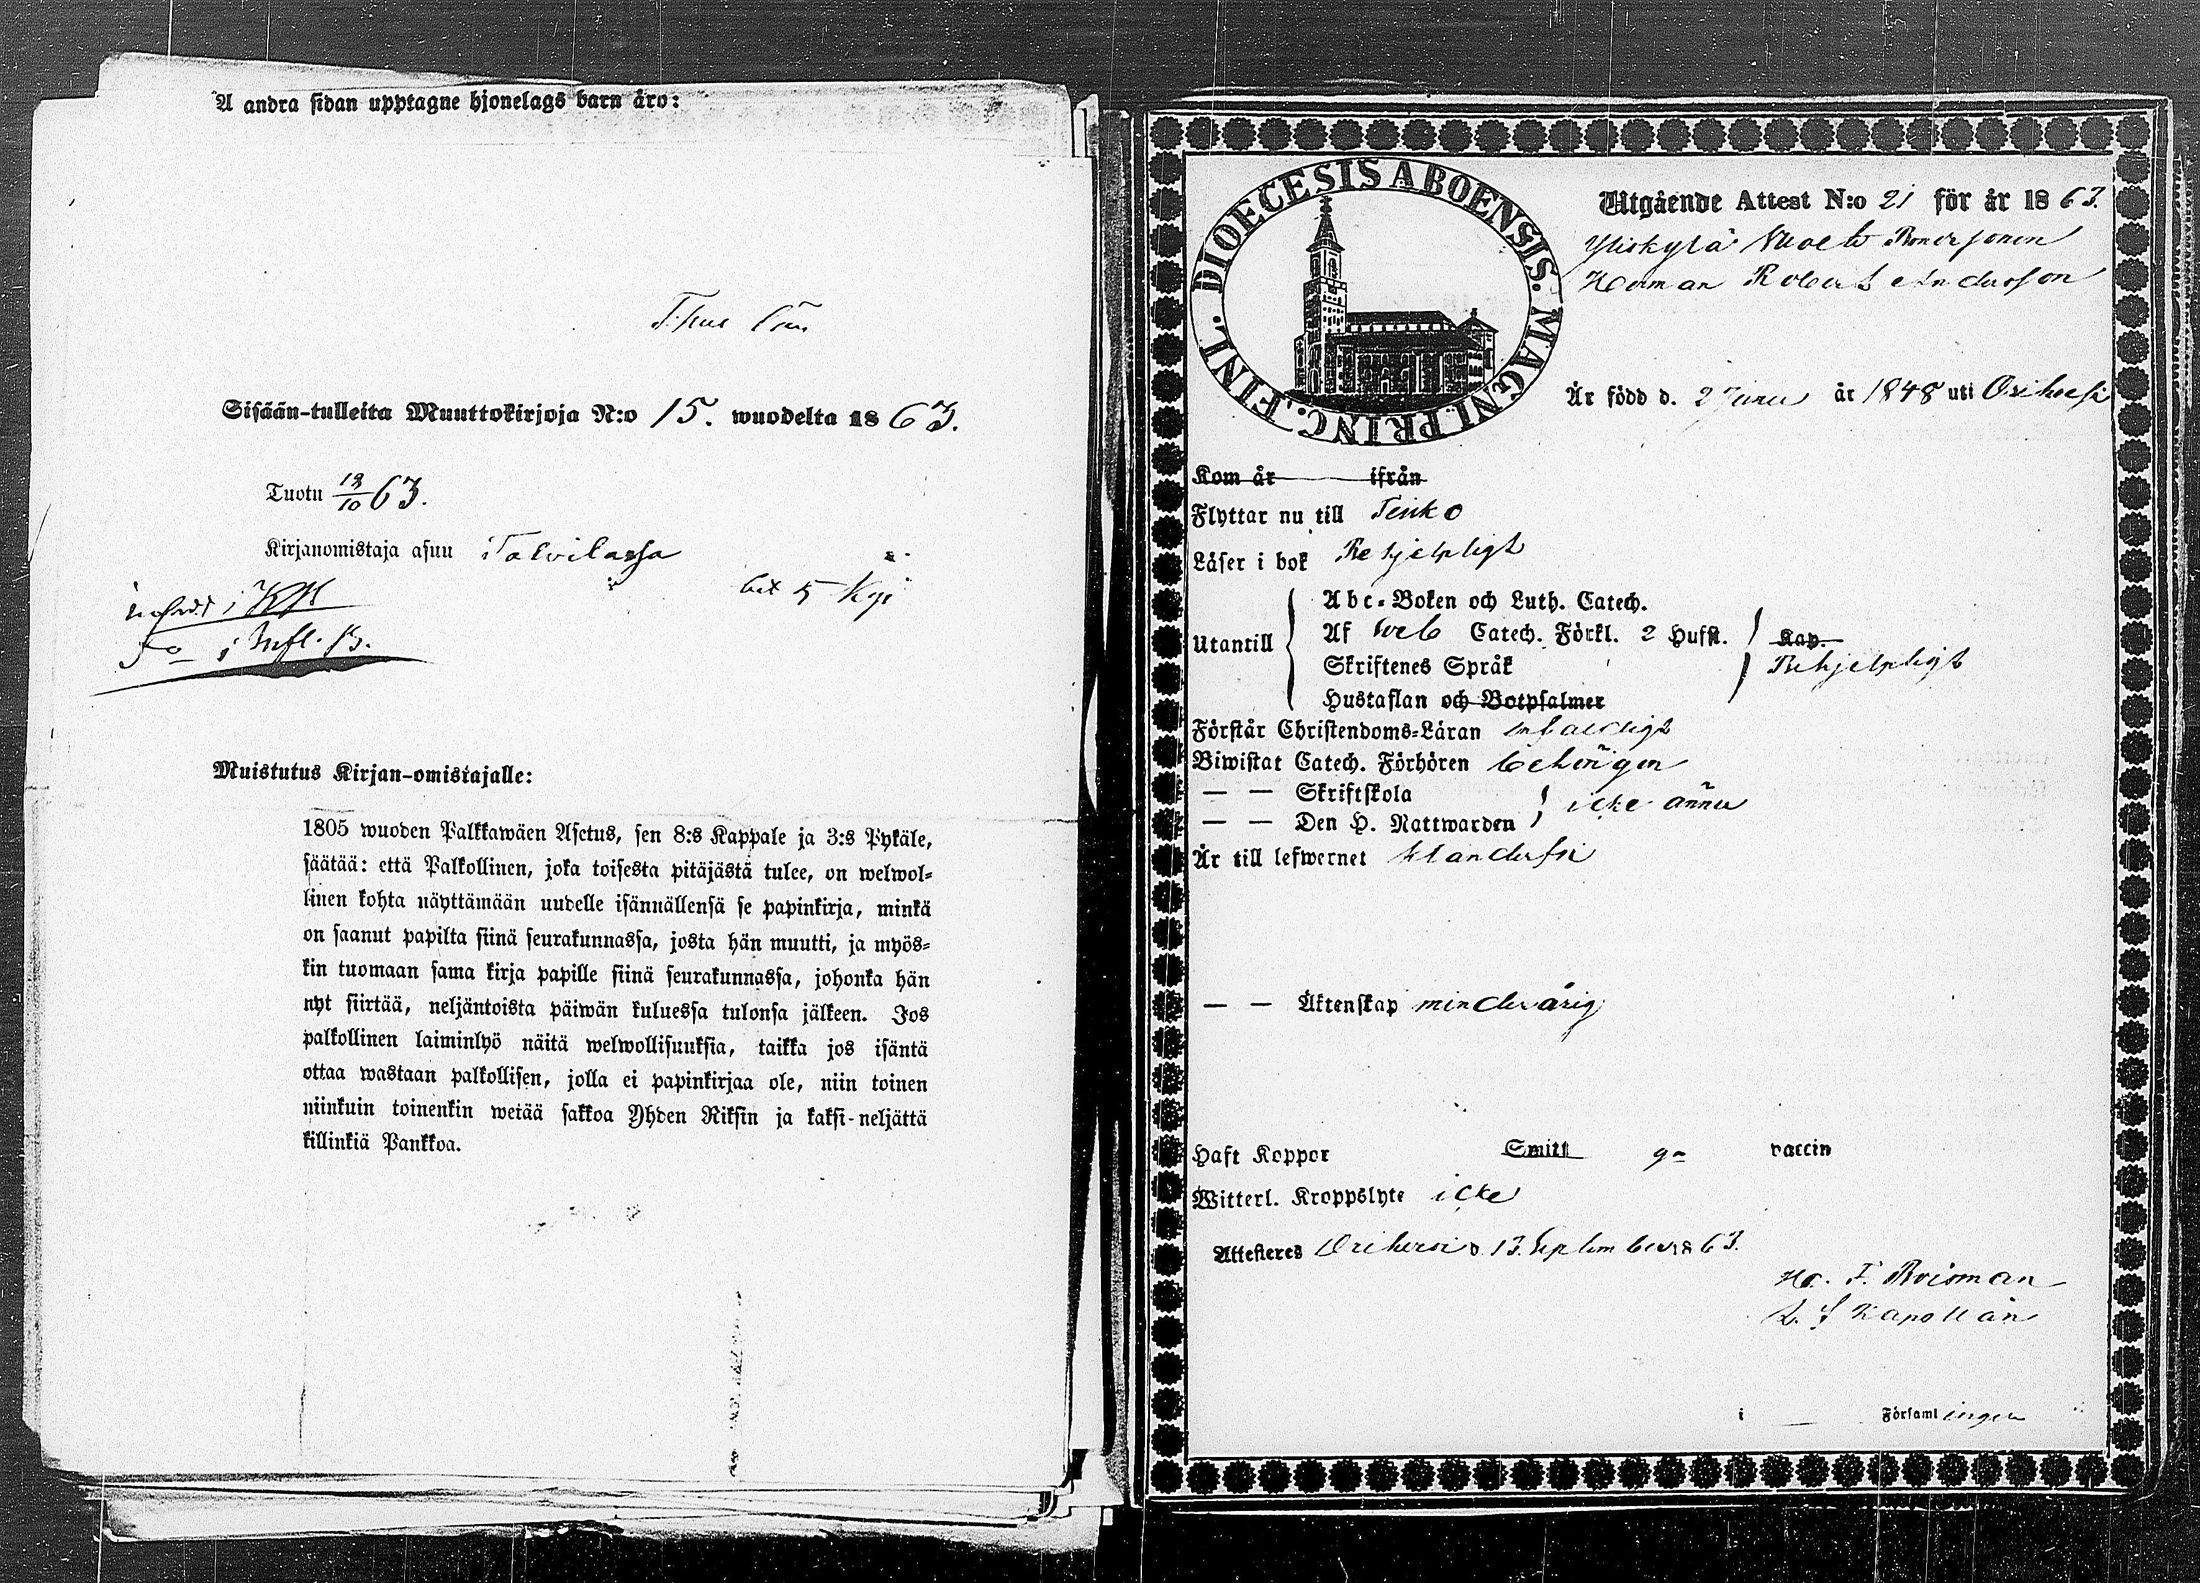 Å andra sidan upptagne hjonelags barn äro:
Sisään-tulleita Muuttokirjoja N:o 15. wuodelta 1863.
Tuotu 12/10 63.
Kirjanomistaja asuu Talvilassa
i Infl. B.
Muistutus Kirjan-omistajalle:
1805 wuoden Palkkawäen Asetus, sen 8:s Kappale ja 3:s Pykäle,
säätää: että Palkollinen, joka toisesta pitäjästä tulee, on welwol-
linen kohta näyttämään uudelle isännällensä se papinkirja, minkä
on saanut papilta siinä seurakunnassa, josta hän muutti, ja myös-
kin tuomaan sama kirja papille siinä seurakunnassa, johonka hän
nyt siirtää, neljäntoista päiwän kuluessa tulonsa jälkeen. Jos
palkollinen laiminlyö näitä welwollisuuksia, taikka jos isäntä
ottaa wastaan palkollisen, jolla ei papinkirjaa ole, niin toinen
niinkuin toinenkin wetää sakkoa Yhden Riksin ja kaksi-neljättä
killinkiä Pankkoa.
DIOECESIS ABOENSIS. MAGNI. PRINC. FINL.
Utgående Attest N:o 21 för år 1863.
Yliskylä
Herman Robert Andersson
Är född d. 2 Junii år 1848 uti Orihvesi
Kom år ifrån
Flyttar nu till Teisko
Läser i bok Behjelpligt
Utantill
Abc-Boken och Luth. Catech.
Af Catech. Förkl. 2 Hufst.
Skriftenes Språk
Hustaflan och Botpsalmer
Kap.
Behjelpligt
Förstår Christendoms-Läran enfaldigt
Biwistat Catech. Förhören behörigen
— — Skriftskola
— — Den H. Nattwarden
icke ännu
Är till lefwernet klanderfri
— — Äktenskap minderårig
Haft Koppor Smitt ga vaccin
Witterl. Kroppslyte icke
Attesteras Orihvesi d. 13 September 1863.
Kapellan
i — Församlingen